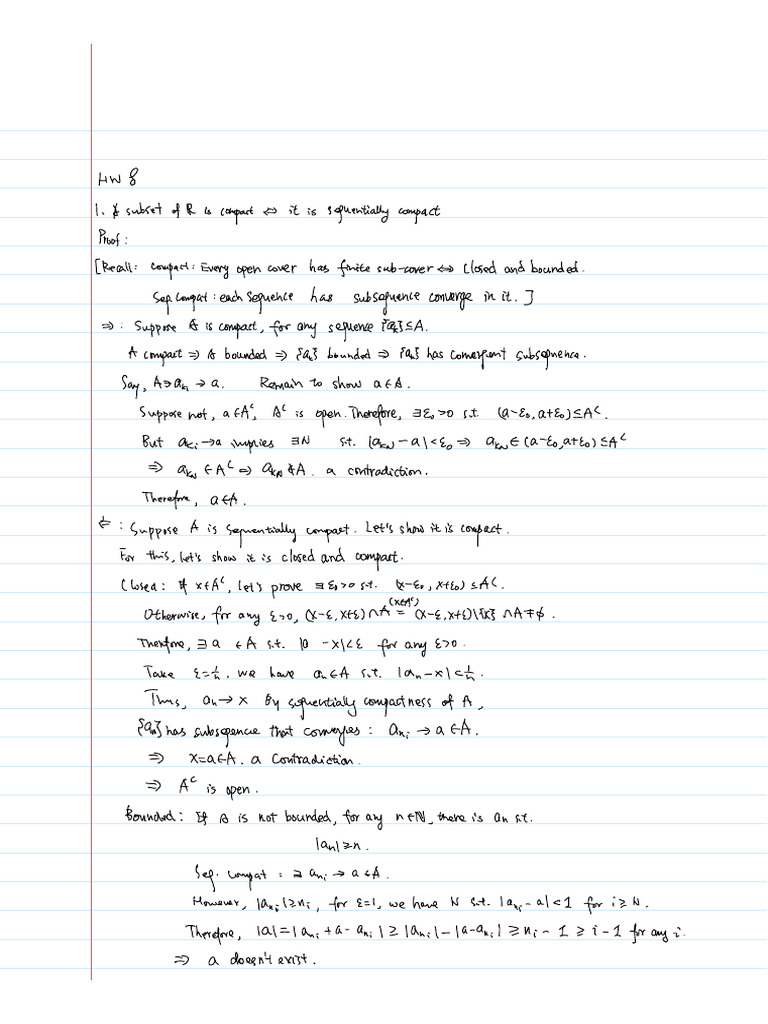 HW 8
1. A subset of R is compact ⇔ it is sequentially compact
Proof:
[Recall: compact: Every open cover has finite sub-cover ⇔ Closed and bounded.
Seq compat: each sequence has subsequence converge in it. ]
⇒: Suppose A is compact, for any sequence {aₖ} ⊆ A.
A compact ⇒ A bounded ⇒ {aₖ} bounded ⇒ {aₖ} has convergent subsequence.
Say, A∋a_{k_i} → a. Remain to show a∈A.
Suppose not, a∈Aᶜ, Aᶜ is open. Therefore, ∃ε₀>0 s.t. (a-ε₀, a+ε₀) ⊆ Aᶜ.
But a_{k_i} → a implies ∃N s.t. |a_{k_N} - a| < ε₀ ⇒ a_{k_N} ∈ (a-ε₀, a+ε₀) ⊆ Aᶜ
⇒ a_{k_N} ∈ Aᶜ ⇒ a_{k_N} ∉ A. a contradiction.
Therefore, a∈A.
⇐: Suppose A is sequentially compact. Let's show it is compact.
For this, let's show it is closed and compact.
Closed: If x∈Aᶜ, let's prove ∃ε₀>0 s.t. (x-ε₀, x+ε₀) ⊆ Aᶜ.
Otherwise, for any ε>0, (x-ε, x+ε) ∩ A =^{(x∈Aᶜ)} (x-ε, x+ε)\{x} ∩ A ≠ ∅.
Therefore, ∃ a ∈ A s.t. |a - x| < ε for any ε>0.
Take ε=1/n, we have aₙ∈A s.t. |aₙ-x| < 1/n.
Thus, aₙ → x By sequentially compactness of A,
{aₙ} has subsequence that converges: a_{n_i} → a ∈ A.
⇒ x=a∈A. a contradiction.
⇒ Aᶜ is open.
Bounded: If A is not bounded, for any n∈ℕ, there is aₙ s.t.
|aₙ| ≥ n.
Seq. compat: ∃ a_{n_i} → a ∈ A.
However, |a_{n_i}| ≥ n_i, for ε=1, we have N s.t. |a_{n_i} - a| < 1 for i ≥ N.
Therefore, |a| = |a_{n_i} + a - a_{n_i}| ≥ |a_{n_i}| - |a - a_{n_i}| ≥ n_i - 1 ≥ i - 1 for any i.
⇒ a doesn't exist.